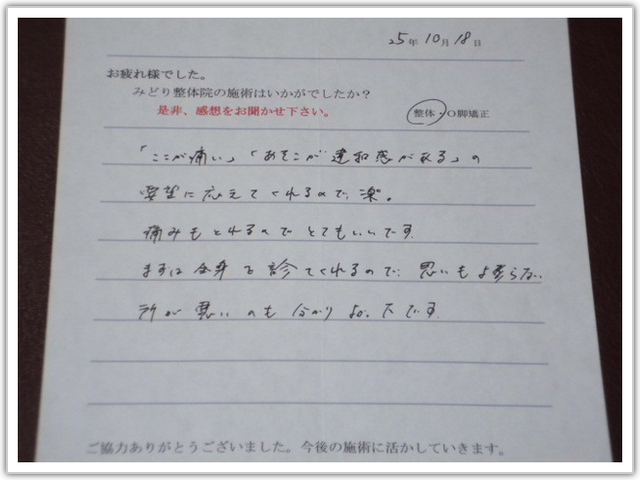 25年10月18日
お疲れ様でした。
みどり整体院の施術はいかがでしたか？
是非、感想をお聞かせ下さい。
整体・O脚矯正
「ここが痛い」「あそこが違和感がある」の
要望に応えてくれるので、楽。
痛みもとれるのでとてもいいです。
まずは全身を診てくれるので、思いもよらない
所が悪いのも分かりよかったです。
ご協力ありがとうございました。今後の施術に活かしていきます。